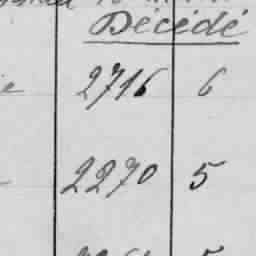 Décédé
2716 6
2270 5